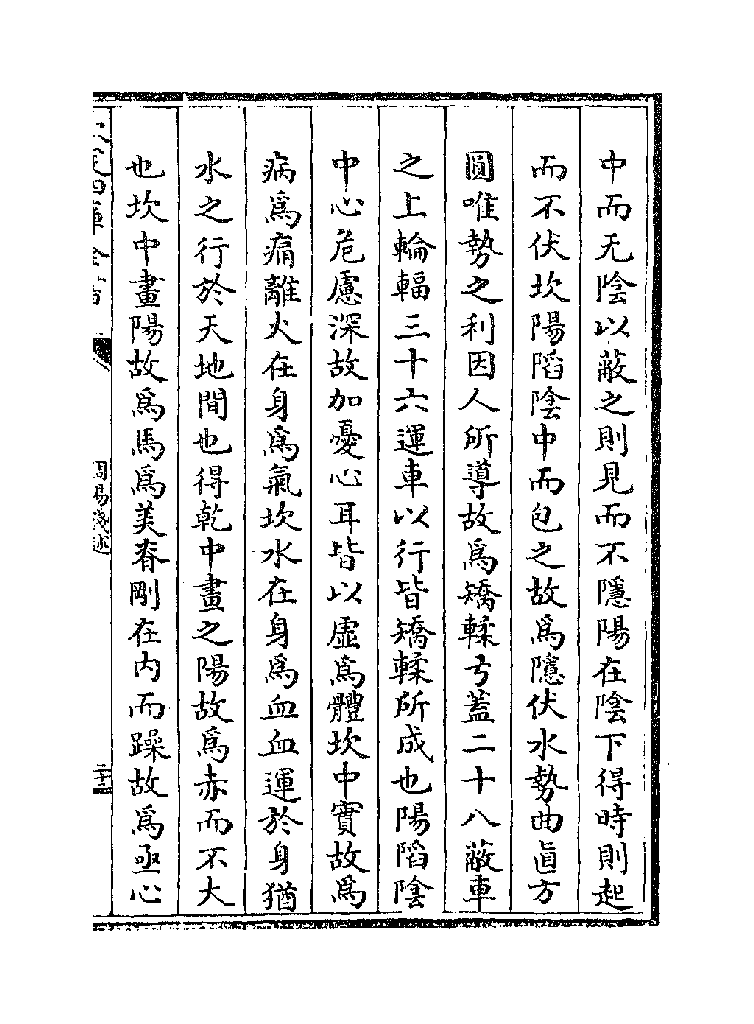 中而无陰以蔽之則見而不隱陽在陰下得時則起
而不伏坎陽陷陰中而包之故為隱伏水勢曲直方
圓唯勢之利因人所導故為矯輮弓蓋二十八蔽車
之上輪輻三十六運車以行皆矯輮所成也陽陷陰
中心危慮深故加憂心耳皆以虛為體坎中實故為
病為痛離火在身為氣坎水在身為血血運於身猶
水之行於天地間也得乾中畫之陽故為赤而不大
也坎中畫陽故為馬為美脊剛在内而躁故為亟心
周易淺述
二十二